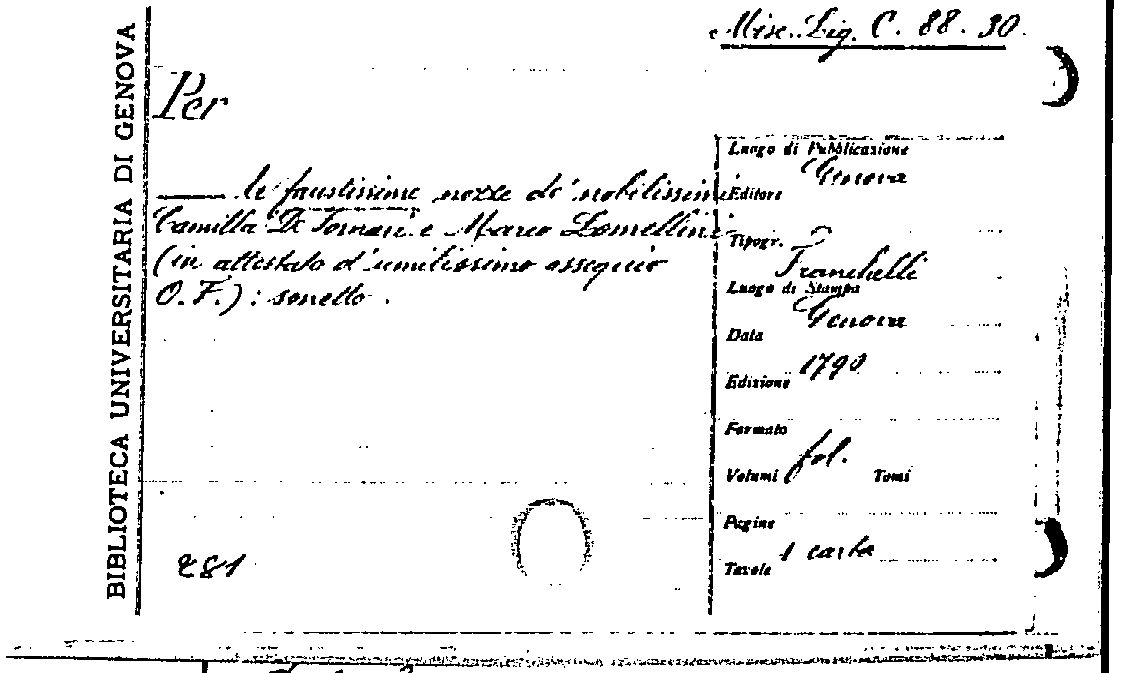 Misc. Lig. C. 88. 30.
BIBLIOTECA UNIVERSITARIA DI GENOVA
Per
le faustissime nozze de' nobilissimi
Camilla De Fornari e Marco Lomellini
(in attestato d'umilissimo ossequio
O. F.) : sonetto.
281
Luogo di Pubblicazione
Genova
Editore
Tipogr.
Franchelli
Luogo di Stampa
Genova
Data
1790
Edizione
Formato
fol.
Volumi Tomi
Pagine
1 carta
Tavole